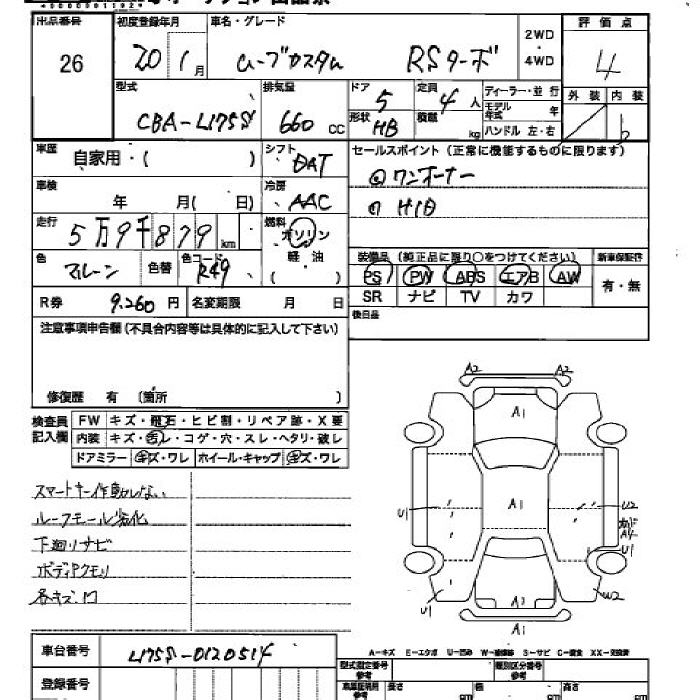 出品番号 初度登録年月 車名・グレード 2WD・4WD 評価点
26 20 1月 ムーブカスタム RSターボ 4
型式 排気量 ドア 定員 ディーラー・並行 外装 内装
CBA-L175S 660 cc 5 4人 モデル年式 年 b
形状 HB 積載 kg ハンドル 左・右
車歴 自家用・( ) シフト DAT セールスポイント (正常に機能するものに限ります)
車検 年 月( 日) 冷房 AAC ◎ワンオーナー
走行 5万9千879km 燃料 ガソリン 軽油 ( ) HID
色 マルーン 色替 色コード R49 装備品 (純正品に限り○をつけてください) 新車保証書
PS PW ABS エアB AW 有・無
R券 9.260円 名変期限 月 日 SR ナビ TV カワ
注意事項申告欄(不具合内容等は具体的に記入して下さい) 後日品
修復歴 有 (箇所 )
検査員記入欄 FW キズ・飛石・ヒビ割・リペア跡・X要
内装 キズ・汚レ・コゲ・穴・スレ・ヘタリ・破レ
ドアミラー キズ・ワレ ホイール・キャップ キズ・ワレ
スマートキー作動しない
ルーフモール劣化
下廻りサビ
ボディクモリ
各キズ.凹
A2 A2
A1
U1 A1 U2
A4
U1
U1 A2 W2
A1
車台番号 L175S-0120514
A-キズ E-エクボ U-凹み W-補修跡 S-サビ C-腐食 XX-交換済
登録番号 型式指定番号 参考 類別区分番号 参考
長さ cm 幅 cm 高さ cm